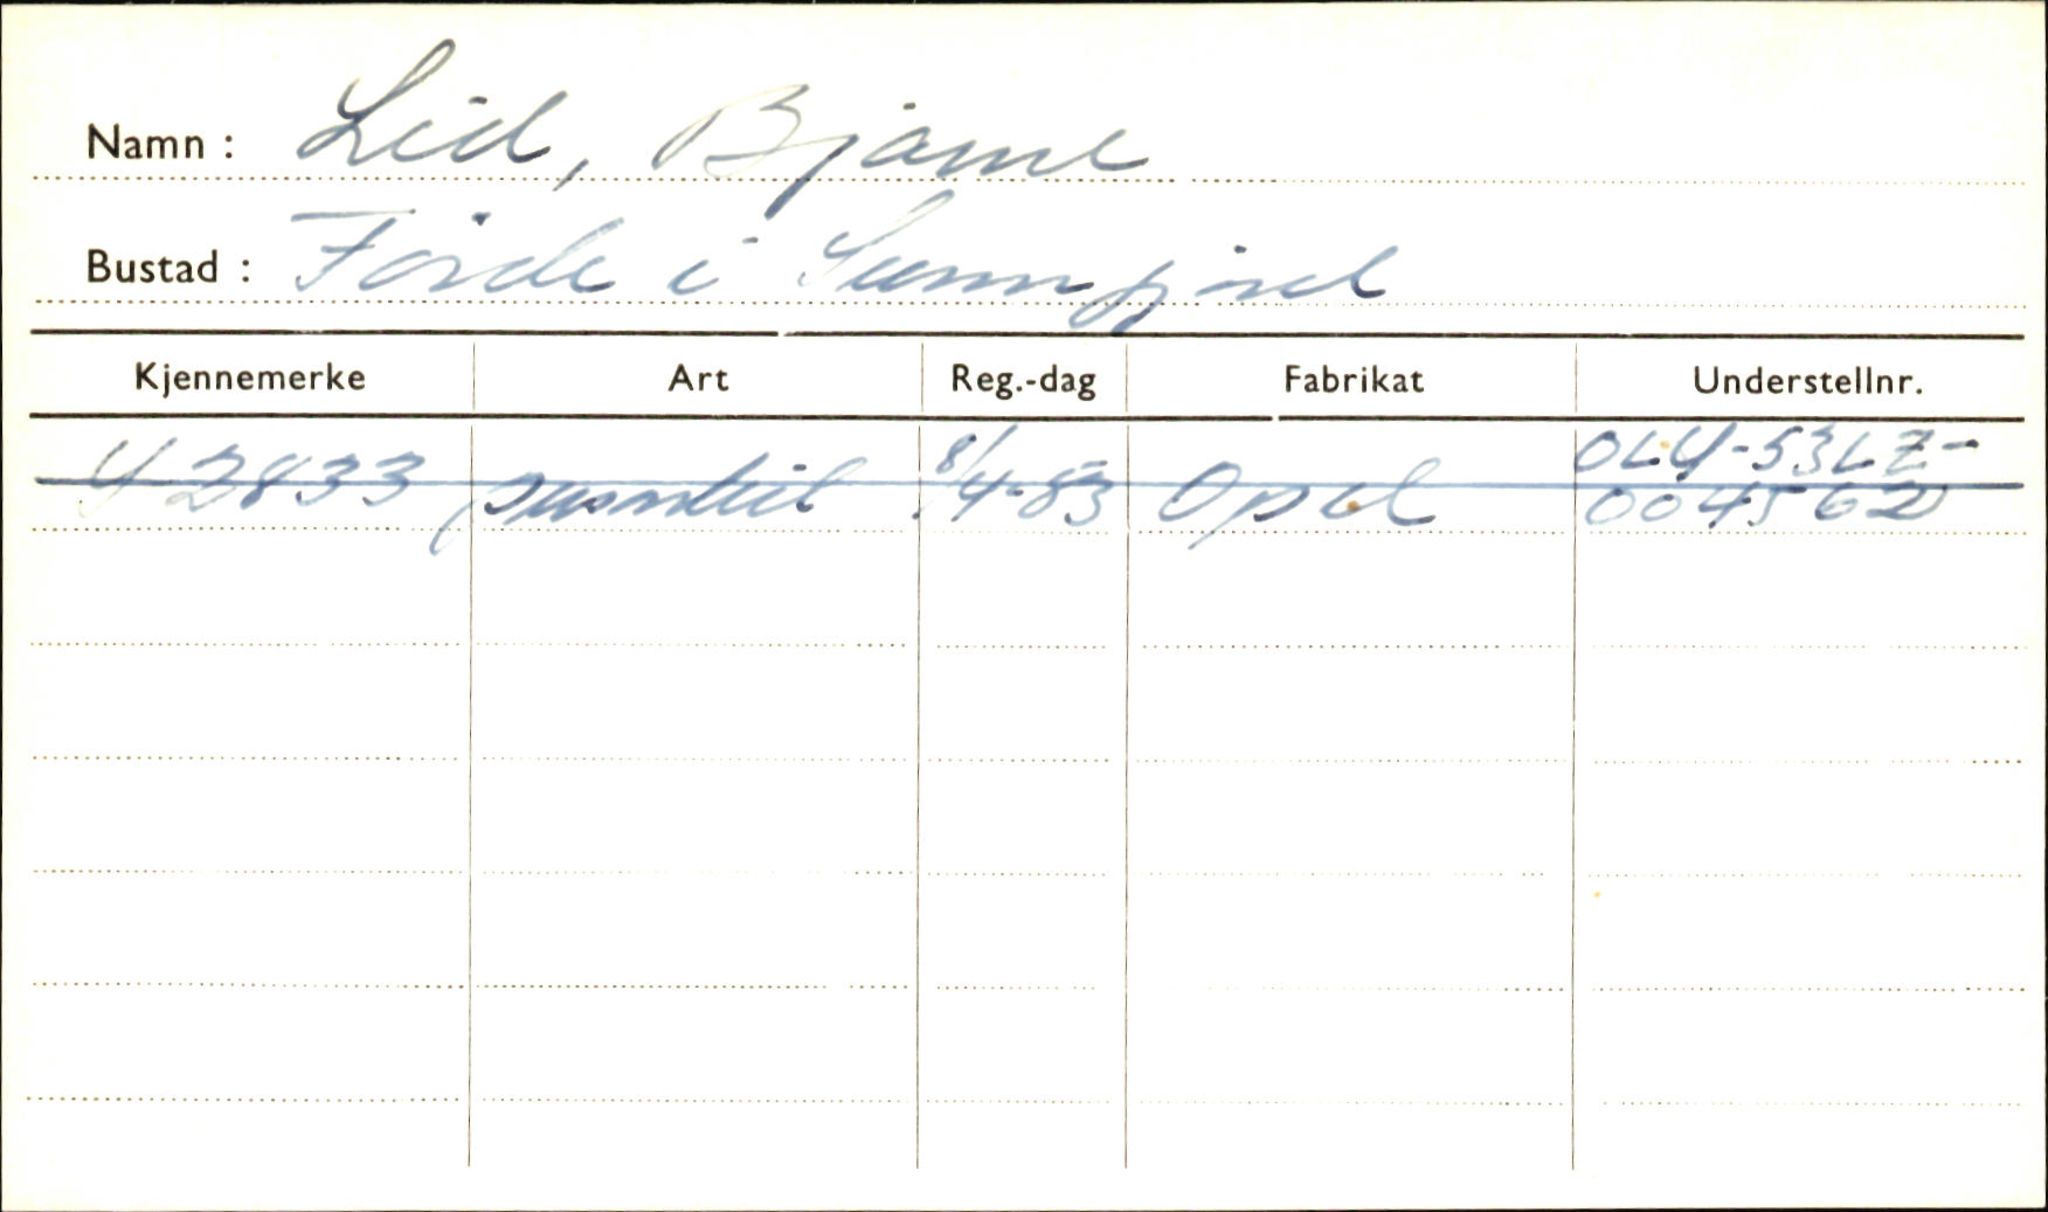 Namn : Lid, Bjarne
Bustad : Førde i Sunnfjord
Kjennemerke Art Reg.-dag Fabrikat Understellnr.
Y 2833 personbil 8/4-53 Opel OLY-53LZ-
004562